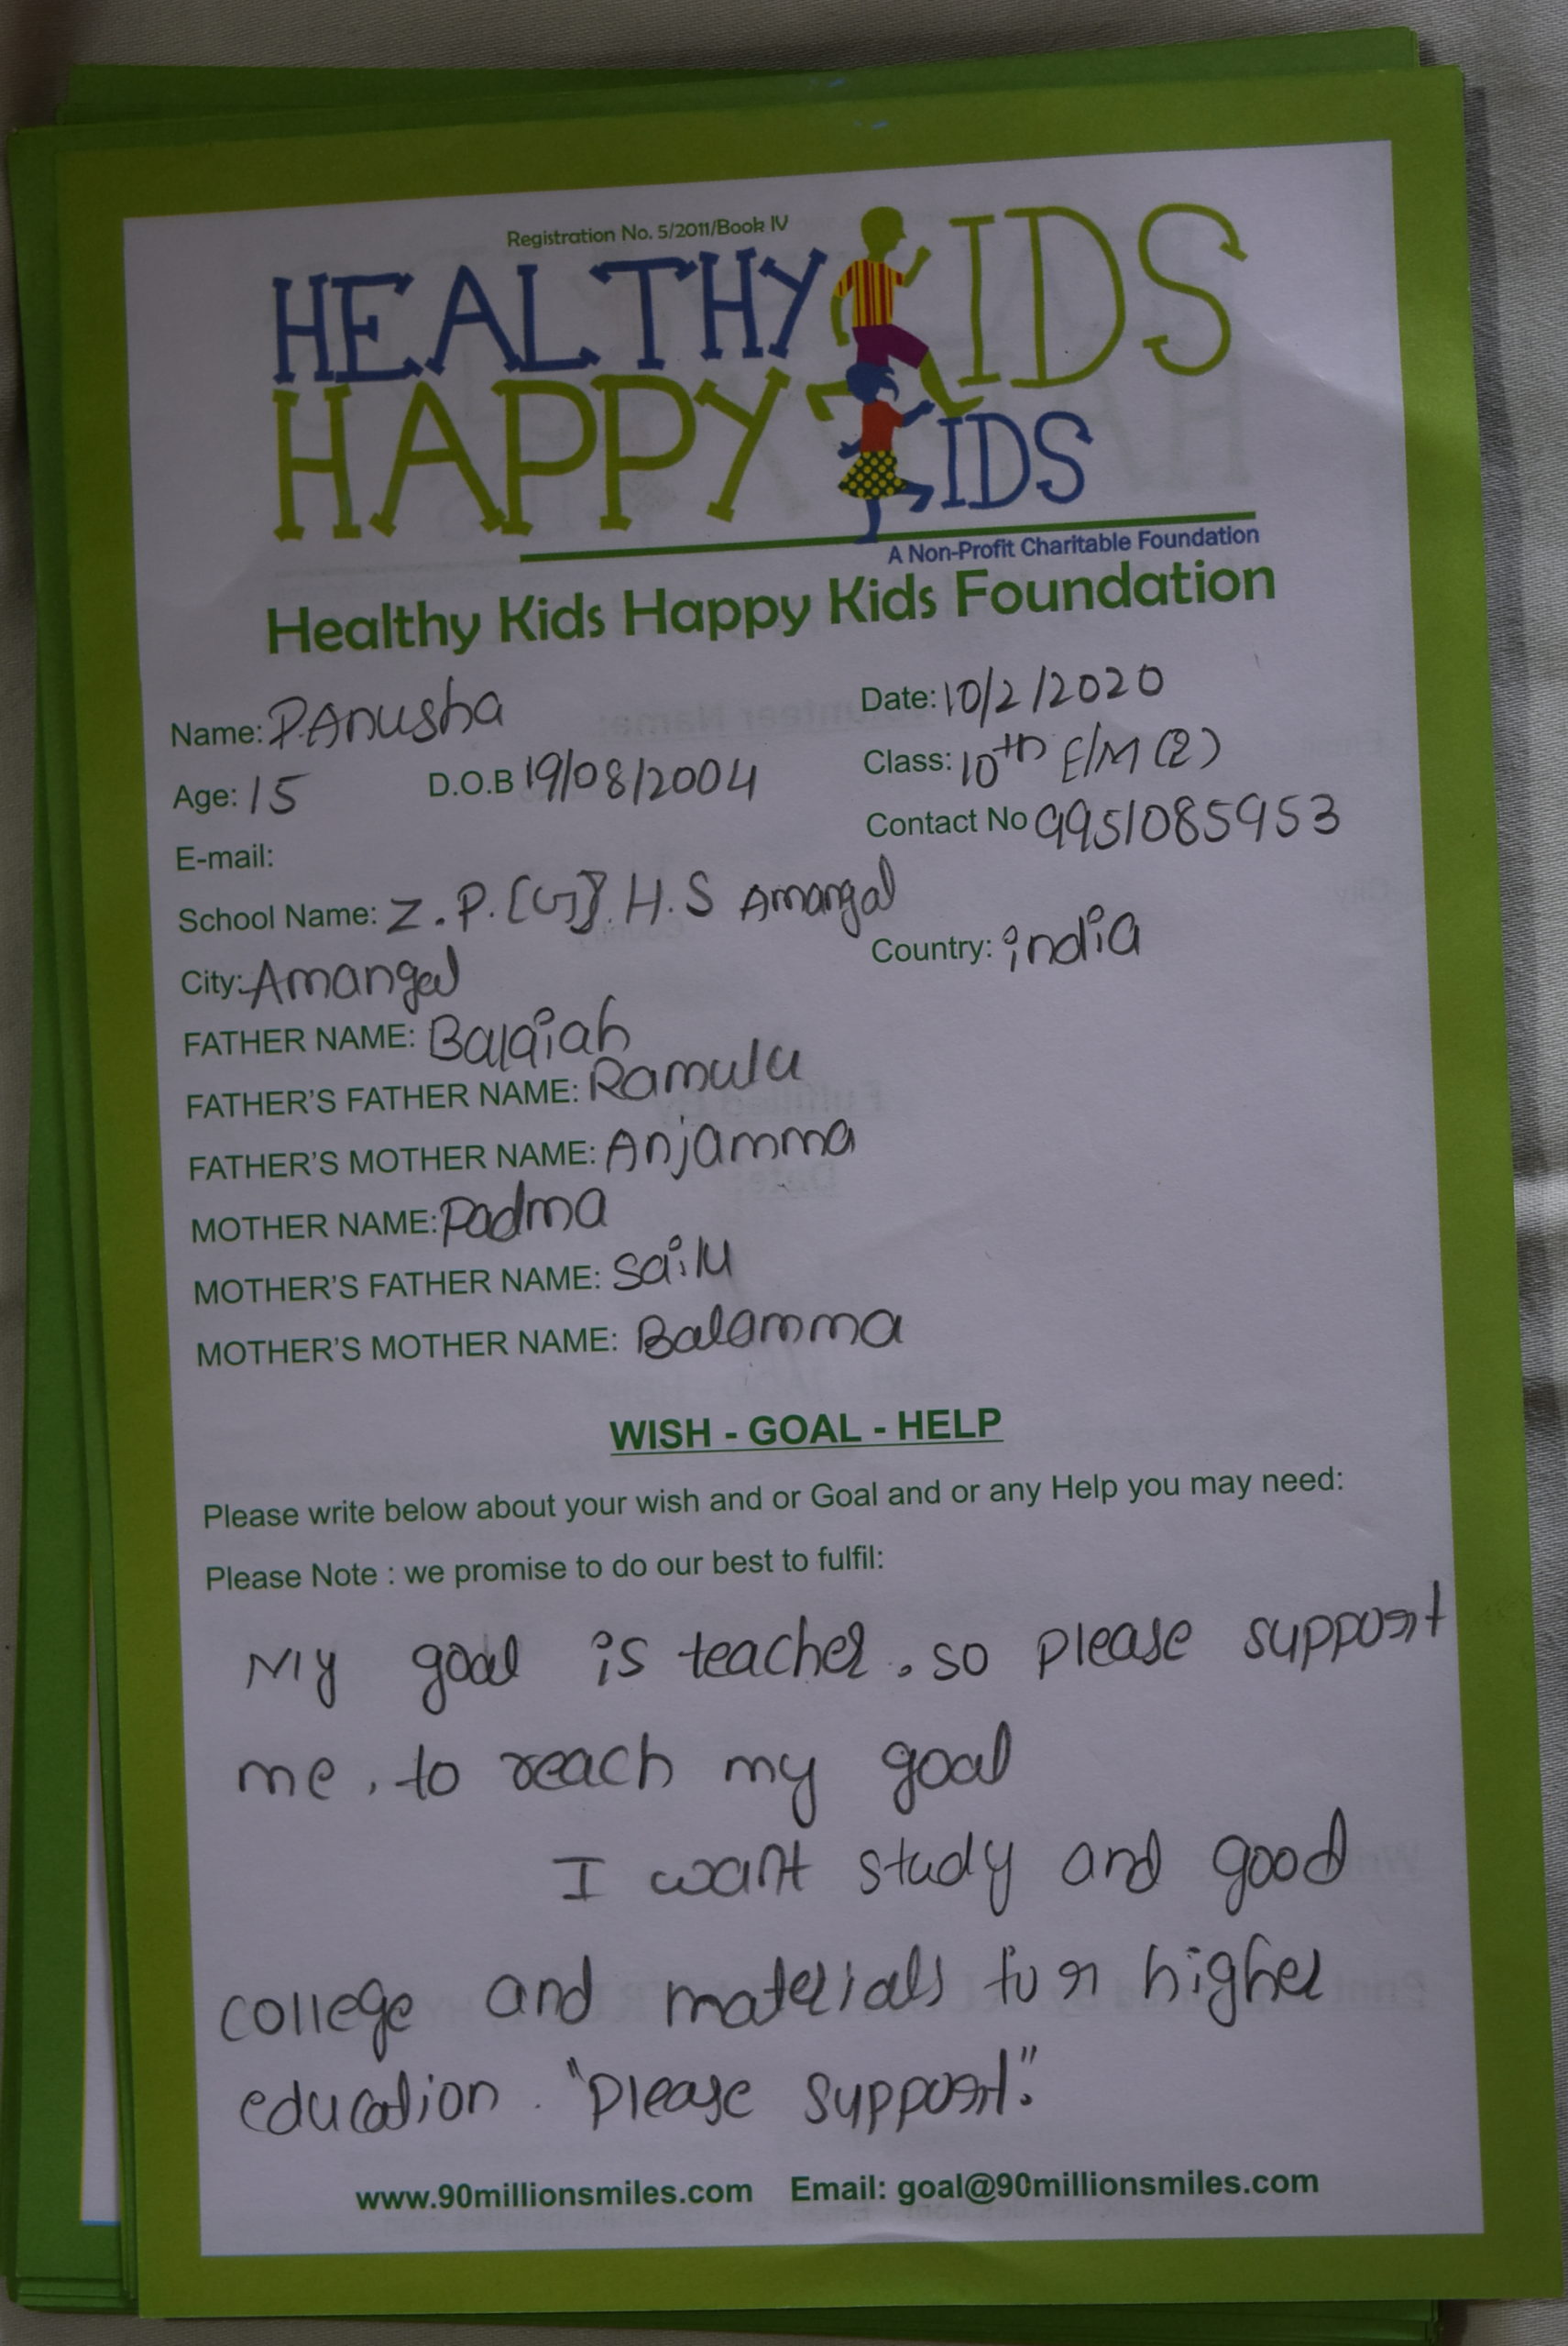 Registration No. 5/2011/Book IV
HEALTHY KIDS
HAPPY KIDS
A Non-Profit Charitable Foundation
Healthy Kids Happy Kids Foundation
Name: P.Anusha Date: 10/2/2020
Age: 15 D.O.B 19/08/2004 Class: 10th E/M (2)
E-mail: Contact No 9951085953
School Name: Z.P.[G].H.S Amangal
City: Amangal Country: india
FATHER NAME: Balaiah
FATHER'S FATHER NAME: Ramulu
FATHER'S MOTHER NAME: Anjamma
MOTHER NAME: Padma
MOTHER'S FATHER NAME: Sailu
MOTHER'S MOTHER NAME: Balamma
WISH - GOAL - HELP
Please write below about your wish and or Goal and or any Help you may need:
Please Note : we promise to do our best to fulfil:
My goal is teacher. so please support
me, to reach my goal
I want study and good
college and materials for higher
education. "Please support."
www.90millionsmiles.com Email: goal@90millionsmiles.com